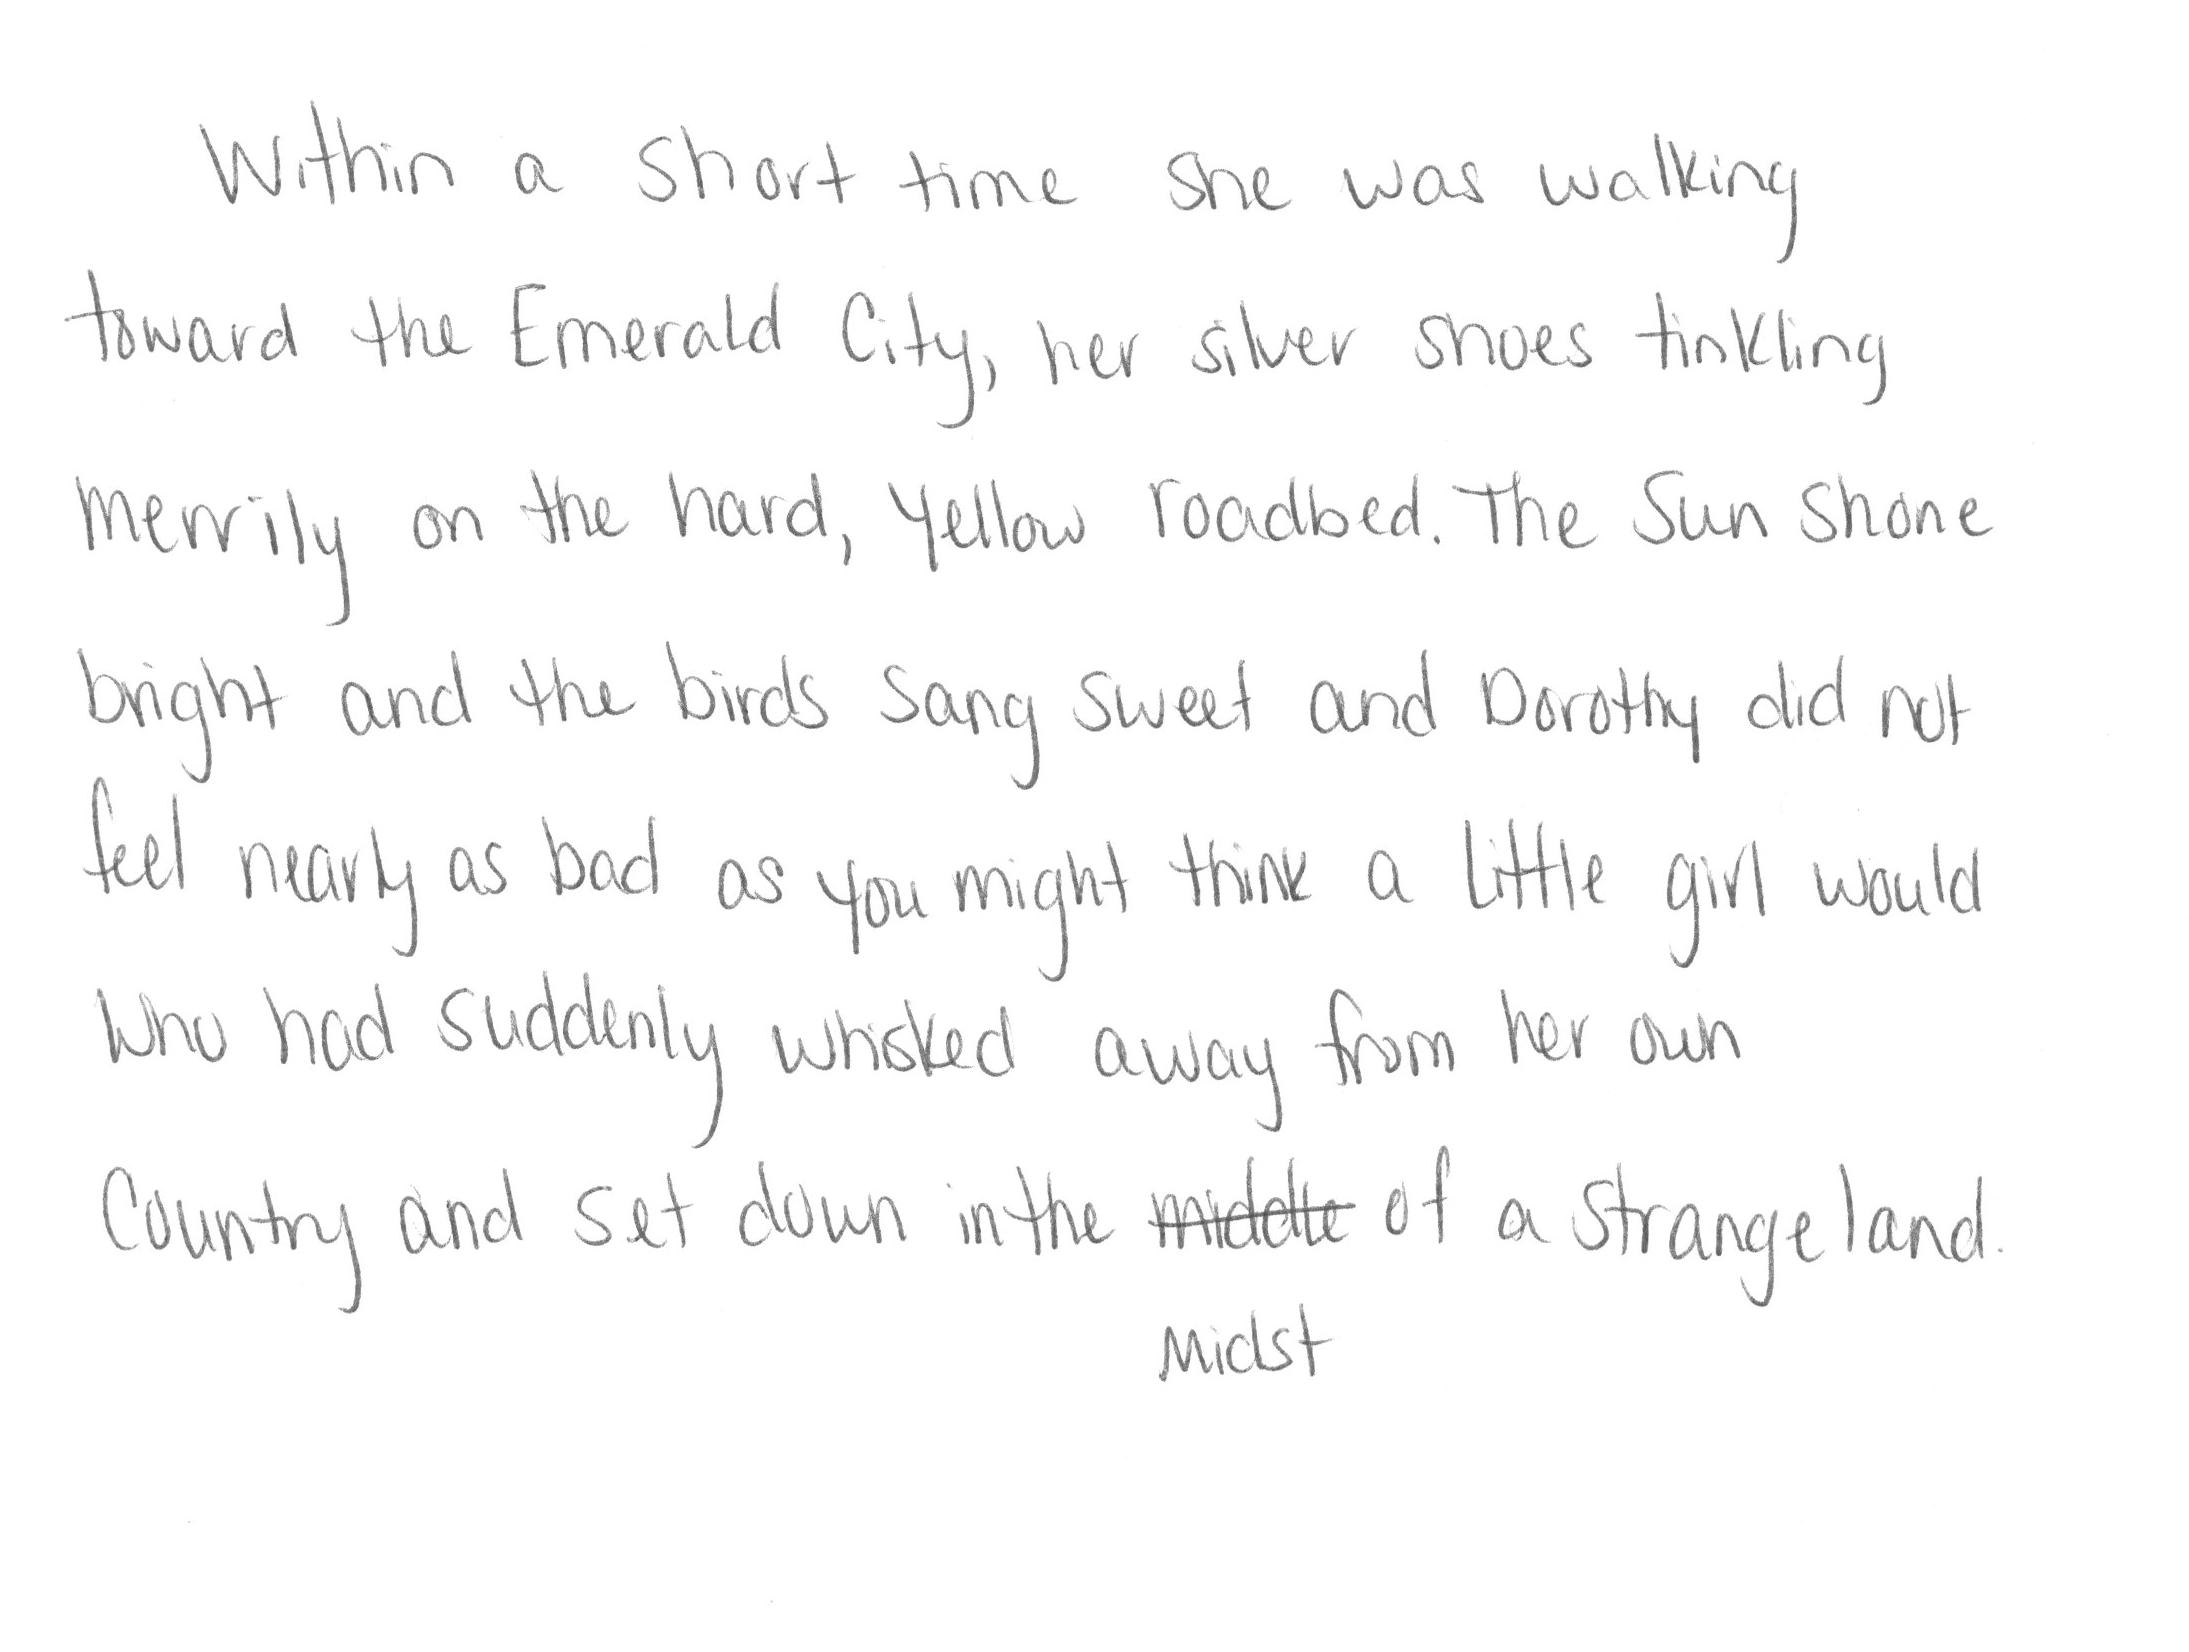 Within a short time she was walking
toward the Emerald City, her silver shoes tinkling
merrily on the hard, yellow roadbed. The Sun Shone
bright and the birds sang sweet and Dorothy did not
feel nearly as bad as you might think a little girl would
who had suddenly whisked away from her own
Country and set down in the middle of a strange land.
Midst